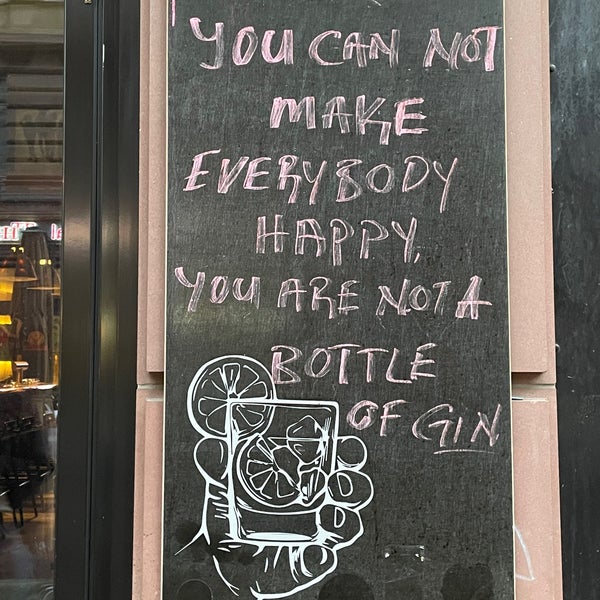 YOU CAN NOT
MAKE
EVERYBODY
HAPPY,
YOU ARE NOT A
BOTTLE
OF GIN